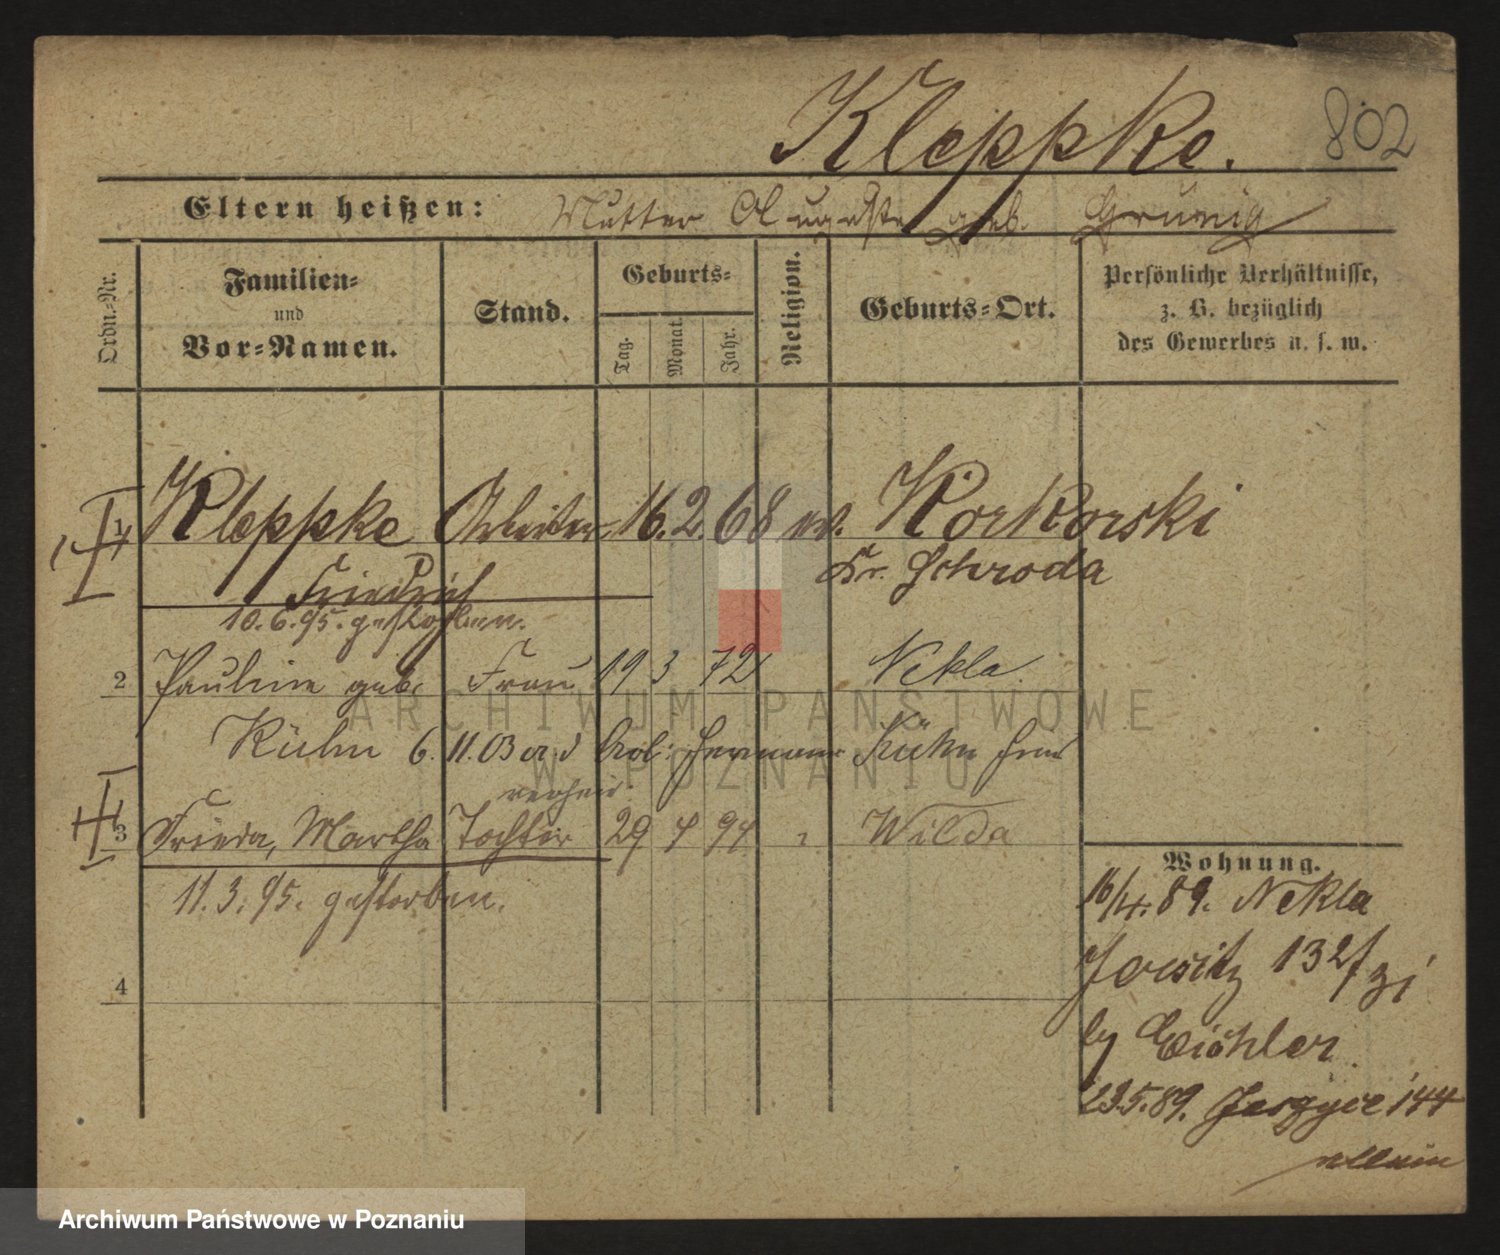 Kleppke.
802
Eltern heißen: Mutter Auguste geb. Grünig
Ordn.-Nr.
Familien-
und
Vor-Namen.
Stand.
Geburts-
Tag.
Monat.
Jahr.
Religion.
Geburts-Ort.
Persönliche Verhältnisse,
z. B. bezüglich
des Gewerbes u. s. w.
1 Kleppke Arbeiter 16. 2. 68 ev. Korkorski
Friedrich Kr. Schroda
10. 6. 95. gestorben.
2 Pauline geb. Frau 19 3 72 Nekla.
Kühn 6. 11. 03 a. d Arb: Hermann Kühn
verheir.
3 Frieda, Martha Tochter 29 4 94 " Wilda
11. 3. 95. gestorben.
4
Wohnung.
16/4. 89. Nekla
Jersitz 132
by
23.5.89. 144
allein
ARCHIWUM PAŃSTWOWE
W POZNANIU
Archiwum Państwowe w Poznaniu